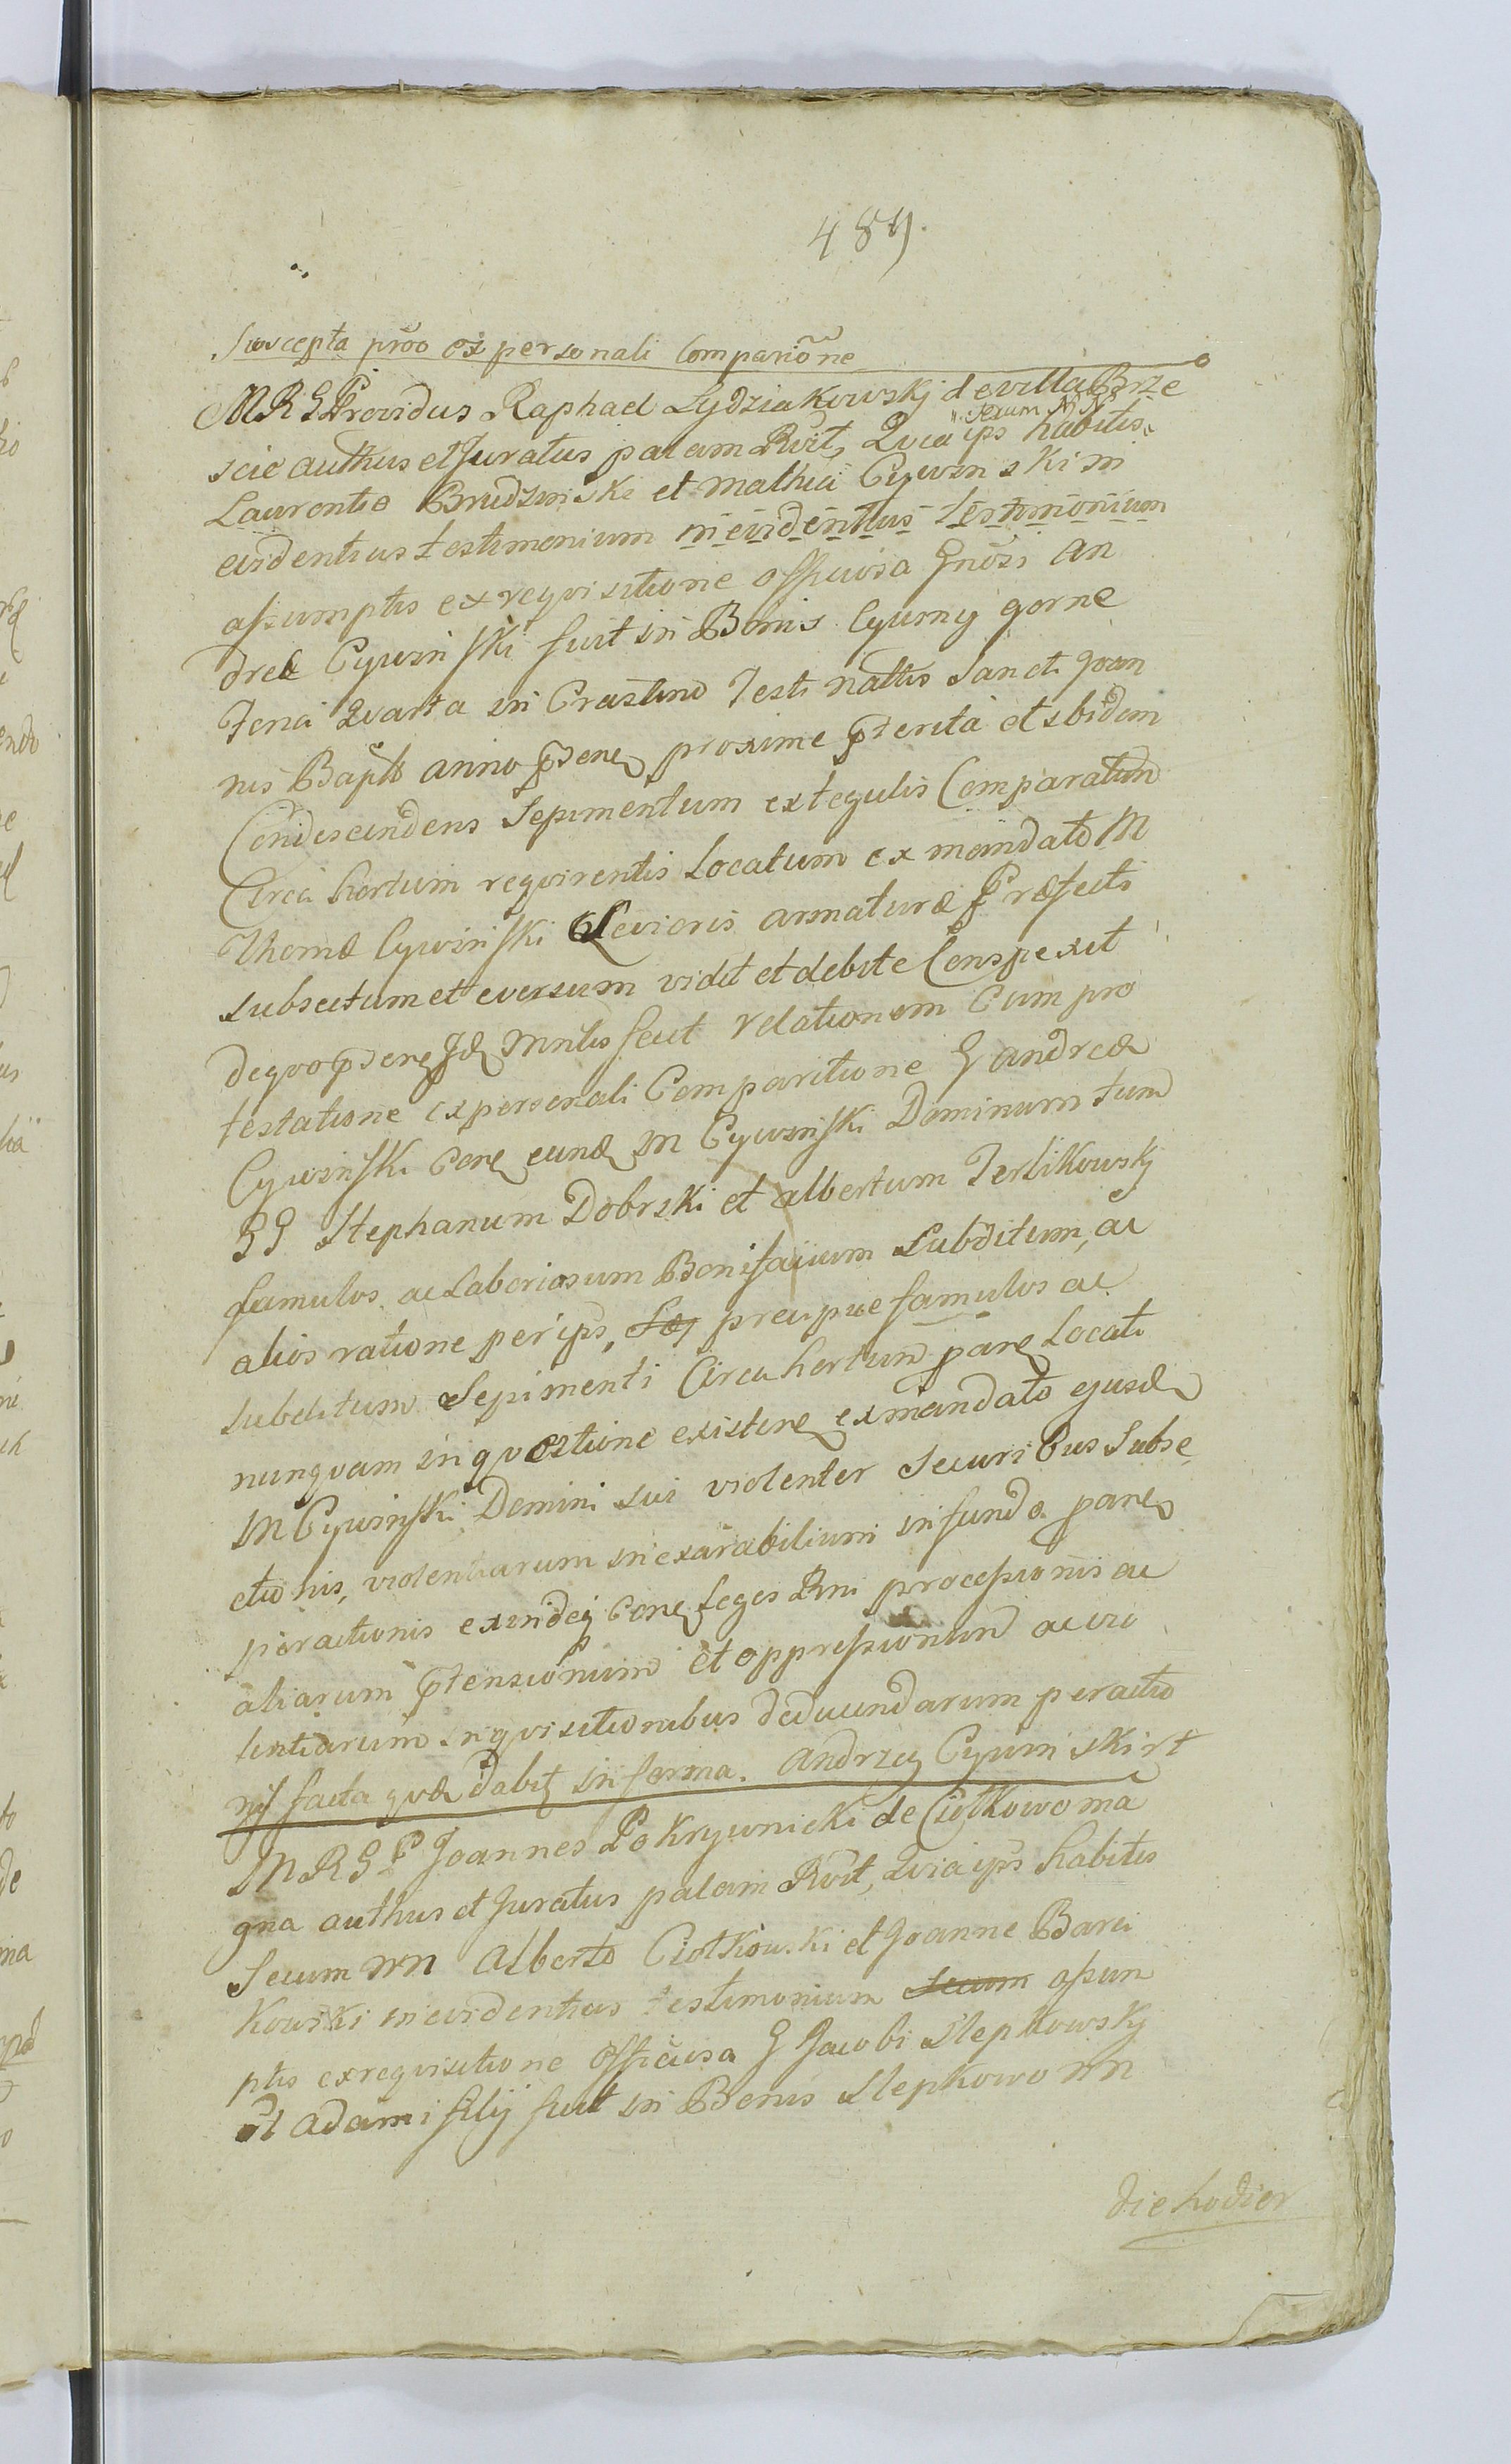 489.
Suscepta prõo ex personali Compariõne
MRGProvidus Raphael Lydziakowskj de villa Brze
scie authus et Juratus palam Rvit, Qvia ips secum NN habitis
Laurentio Brudzinski et Mathia Cywinski in
evidentius testimonium in evidentius testimonium
assumptis ex reqvisitione officiosa Gnosi An
dreæ Cywinski fuit in Bonis Cyuiny gorne
Feria Qvarta in Crastino Festi nattis Sancti Joan
nis Bapte anno pdene proxime pterita et ibidem
Condescendens Sepimentum ex tegulis Comparatum
Circa hortum reqvirentis Locatum ex mandato M
Thomæ Cywinski Levioris armaturæ Præfecti
subsectum et eversum vidit et debite Conspexit
deqvo pdene Jdq Mnlis fecit relationem Cum pro
testatione ex personali Comparitione G Andreæ
Cywinski Cone eund M Cywinski Dominum tum
GG Stephanum Dobrski et Albertum Terlikowskj
famulos ac Laboriosum Bonifacium Subditum, ac
alios ratione per ips, præcipue famulos ac
subditum Sepimenti Circa hortum pane Locati
nunqvam in qvæstione existene ex mandato ejusd
M Cywinski Domini sui violenter securibus Subse
ctionis, violentiarum inexarabilium in fundo pane
peractionis exindeq Cone Leges Rni processionis ac
aliarum ptensionum et oppressionum ac vio
lentiarum inqvisitionibus deducendarum peractio
nis facta qvæ dabit in forma. Andrzey Cywinski rt
MRGP Joannes Pokrzywnicki de Ciołkowo ma
gna authus et Juratus palam Rvit, Qvia ips habitis
Secum nn Alberto Ciołkowski et Joanne Barci
kowski in evidentius testimonium secum assum
ptis ex reqvisitione officiosa G Jacobi Slepkowskj
et Adami filij fuit in Bonis Slepkowo nn
die hodier